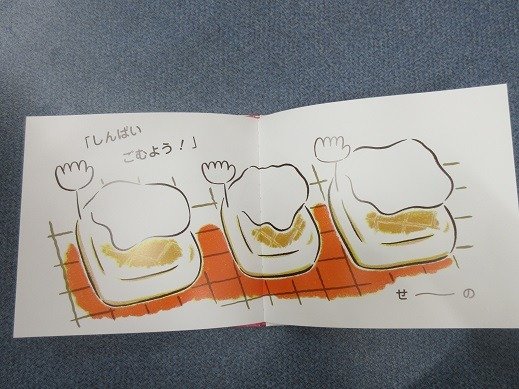 「しんぱい
ごむよう！」
せーーの